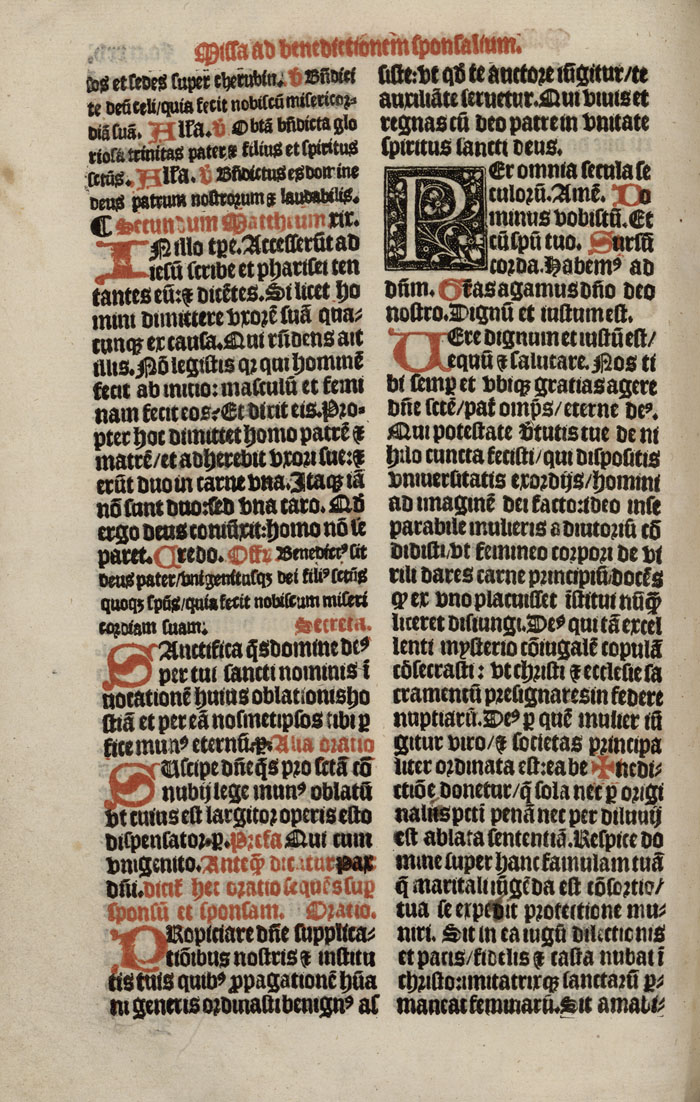 Missa ad benedictionem sponsalium.
sos et sedes super cherubin. ℣ Bn̄dici
te deū celi/quia fecit nobiscū misericor⸗
diā suā. Alꝉa. ℣ Obtā bn̄dicta glo
riosa trinitas pater ⁊ filius et spiritus
sctūs. Alꝉa. ℣ Bn̄dictus es domine
deus patrum nostrorum ⁊ laudabilis.
¶ Secundum Mattheum xix.
IN illo tꝑe. Accesserūt ad
iesū scribe et pharisei ten
tantes eū:⁊ dicētes. Si licet ho
mini dimittere vxorē suā qua⸗
cunqꝫ ex causa. Qui rn̄dens ait
illis. Nō legistis qꝛ qui hominē
fecit ab initio: masculū et femi
nam fecit eos. Et dixit eis. Pro⸗
pter hoc dimittet homo patrē ⁊
matrē/et adherebit vxori sue:⁊
erūt duo in carne vna. Itaqꝫ iā
nō sunt duo:sed vna caro. Qd̄
ergo deus coniūxit:homo nō se
paret. Credo. Offꝫ Benedictꝰ sit
deus pater/vnigenitusqꝫ dei filiꝰ sctūs
quoqꝫ spūs/quia fecit nobiscum miseri
cordiam suam. Secreta.
SAnctifica qs̄ domine deꝰ
per tui sancti nominis ī
uocationē huius oblationis ho
stiā et per eā nosmetipsos tibi ꝑ
fice munꝰ eternū.ꝑ. Alia oratio
SUscipe dn̄e qs̄ pro sctā cō
nubij lege munꝰ oblatū
vt cuius est largitor operis esto
dispensator.ꝑ. Prefa Qui cum
vnigenito. Anteqꝫ dicatur pax
dn̄i. dicit̉ hec oratio sequēs suꝑ
sponsū et sponsam. Oratio.
PRopiciare dn̄e supplica⸗
tiōibus nostris ⁊ institu
tis tuis quibꝰ ꝓpagationē hūa
ni generis ordinasti benignꝰ as
siste: vt qd̄ te auctore iūgitur/te
auxiliāte seruetur. Qui viuis et
regnas cū deo patre in vnitate
spiritus sancti deus.
PEr omnia secula se
culorū. Amē. Do
minus vobiscū. Et
cū spū tuo. Sursū
corda. Habemꝰ ad
dūm. Grās agamus dn̄o deo
nostro. Dignū et iustum est.
UEre dignum et iustū est/
equū ⁊ salutare. Nos ti
bi semꝑ et vbiqꝫ gratias agere
dn̄e sctē/pat̉ omp̄s/eterne deꝰ.
Qui potestate v̉tutis tue de ni
hilo cuncta fecisti/qui dispositis
vniuersitatis exordijs/homini
ad imaginē dei facto:ideo inse
parabile mulieris adiutoriū cō
didisti/vt femineo corpori de vi
rili dares carne principiū/docēs
ꝙ ex vno placuisset īstitui nūqꝫ
liceret disiungi. Deꝰ qui tā excel
lenti mysterio cōiugalē copulā
cōsecrasti: vt christi ⁊ ecclesie sa
cramentū presignares in federe
nuptiarū. Deꝰ ꝑ quē mulier iū
gitur viro/⁊ societas principa
liter ordinata est:ea be ✠ nedi⸗
ctiōe donetur/q̄ sola nec ꝑ origi
nalis pcti penā nec per diluuij
est ablata sententiā. Respice do
mine super hanc famulam tuā
q̄ maritali iūgēda est cōsortio/
tua se expedit protectione mu⸗
niri. Sit in ea iugū dilectionis
et pacis/fidelis ⁊ casta nubat ī
christo:imitatrixqꝫ sanctarū ꝑ⸗
maneat feminarū. Sit amabi⸗